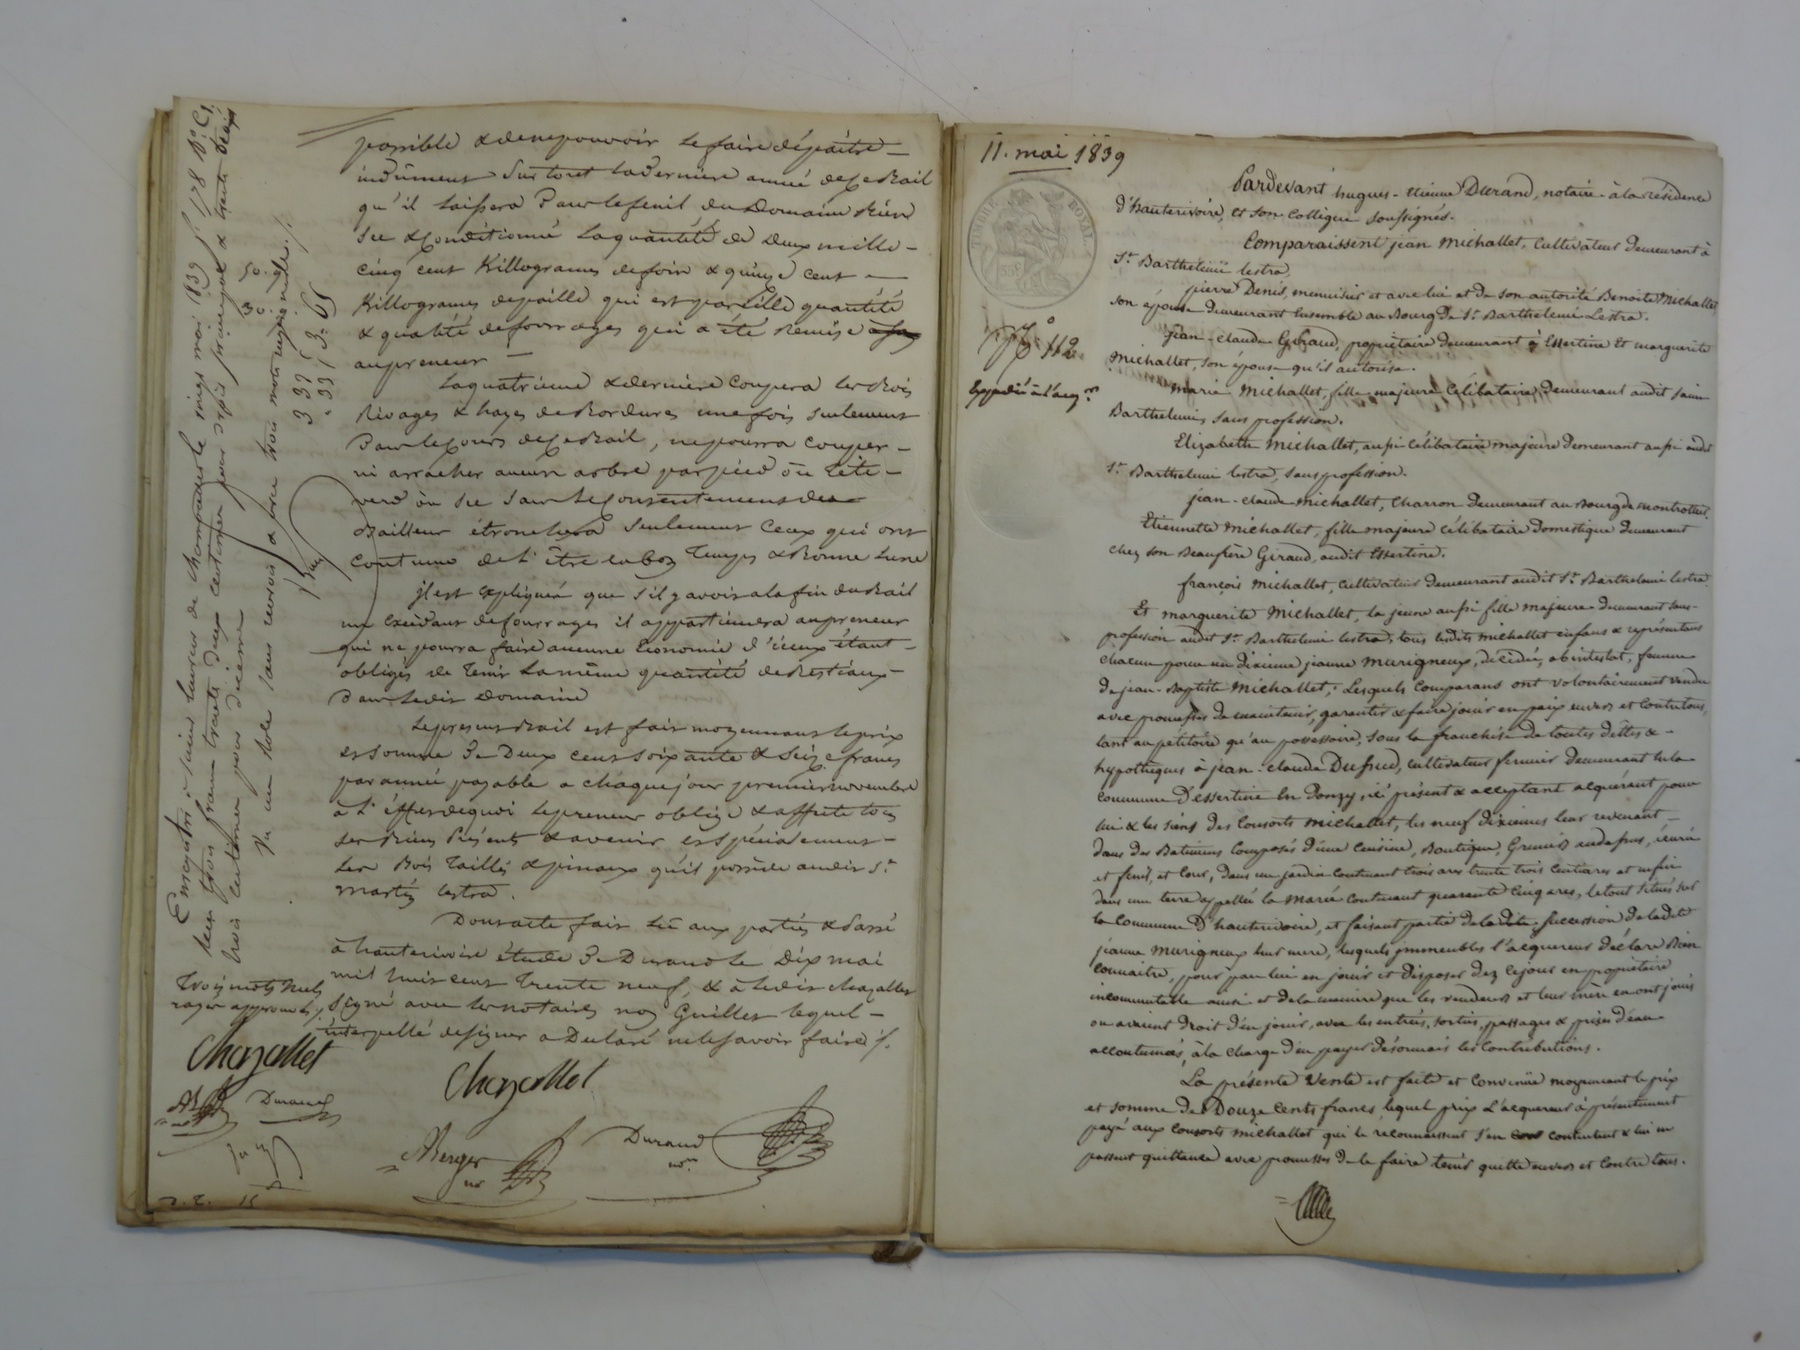 possible & de ne pouvoir le faire dépaître
indûment surtout la dernière année de ce Bail
qu'il laissera Pour le fenil du Domaine Bien
sec & Conditionné la quantité de Deux mille
cinq cent Killogrames de foin & quinze cent
Killogrames de paille qui est pareille quantité
& qualité de fourrages qui a été Remise
au preneur
La quatrième & dernière Coupera les Bois
Rivages & hayes de Bordures une fois seulement
Pour le Cours de ce Bail, ne pourra couper
ni arracher aucun arbre par pied ou tête
verd ou sec sans le Consentement du
Bailleur étronchera seulement Ceux qui ont
Coutume de l'être en bon Temps & Bonne Lune
il est expliqué que s'il y avoit a la fin du Bail
un Excédant de fourrages il appartiendra au preneur
qui ne pourra faire aucune Economie d'iceux étant
obligés de Tenir La même quantité de Bestiaux
Dans ledit Domaine
Le present Bail est fait moyennant le prix
et somme De Deux cent soixante & Seize francs
par année payable a chaque jour premier novembre
a l'Effet de quoi le preneur oblige & affecte tous
ses Biens Présents & avenir et spécialement
Les Bois Taillés & pinaux qu'il possède audit St
martin lestra.
Dont acte fait Lû aux parties & Passé
à hauterivoire étude De Durand le Dix mai
mil huit cent Trente neuf, & a ledit Chazallet
signé avec les notaires non Guillet lequel
interpellé de signer a Declaré ne le savoir faire
Trois mots nuls
rayés approuvés
Chazallet
Durand
Chazallet
Berger
nre
Durand
nre
Enregistré a Saint Laurent de Chamousset le vingt mai 1839 fo 178 Ro C1
reçu trois francs trente deux centimes pour Bail principal & trente deux
trois centimes pour dixième
Vu un Role sans renvoi a vec trois mots rayés nuls
3 33
33
3 65
11. mai 1839
TIMBRE ROYAL
35c
No 112
Expedié a l'acqr
Pardevant hugues-etienne Durand, notaire à la résidence
d'hauterivoire, et son collègue soussignés.
Comparaissent jean Michallet, Cultivateur demeurant à
St Barthelemi lestra,
pierre Denis, menuisier et avec lui et de son autorité Benoite Michallet
son épouse demeurant Ensemble au Bourg de St Barthelemi Lestra.
jean-claude Giraud, propriétaire demeurant à Essertine et marguerite
Michallet, son épouse qu'il autorise.
Marie Michallet, fille majeure Célibataire, demeurant audit Saint
Barthelemi, sans profession.
Elizabette Michallet, aussi célibataire majeure demeurant aussi audit
St Barthelemi lestra, sans profession.
jean-claude Michallet, Charron demeurant au Bourg de Montrottier.
Etiennette Michallet, fille majeure célibataire Domestique demeurant
chez son Beaufrère Giraud, audit Essertine.
françois Michallet, Cultivateur demeurant audit St Barthelemi lestra
Et marguerite Michallet, la jeune aussi fille majeure demeurant sans
profession audit St Barthelemi lestra, tous lesdits Michallet enfans & représentans
chacun pour un dixieme jeanne Murigneux, décédée, abintestat, femme
de jean-Baptiste Michallet, Lesquels Comparans ont volontairement vendu
avec promesses de maintenir, garantir & faire jouir en paix envers et Contre tous,
tant au petitoire qu'au possessoire, sous la franchise de toutes dettes &
hypothèques à jean-claude Dufrud, cultivateur fermier demeurant en la
commune D'essertine En Donzy, ici présent & acceptant acquérant pour
lui & les siens des Consorts Michallet, les neuf dixiemes leur revenant
dans des Batimens Composés d'une Cuisine, Boutique, Greniers audessus, écurie
et fenil, et Cour, dans un jardin contenant trois ares trente trois Centiares et enfin
dans une terre appellée la Marié contenant quarante Cinq ares, le tout situés sur
la Commune D'hauterivoire, et faisant partie de ladite succession de ladite
jeanne Murigneux leur mere, lesquels immeubles l'acquereur déclare Bien
Connaitre, pour par lui en jouir et disposer dez ce jour en propriétaire
incommutable ainsi et de la maniere que les vendeurs et leur mère en ont jouis
ou avaient droit d'en jouir, avec les entrées, sorties, passages & prises d'eau
accoutumées, à la charge d'en payer désormais les Contributions.
La présente Vente est faite et convenue moyennant le prix
et somme de Douze Cents francs, lequel prix L'acquereur à présentement
payé aux Consorts Michallet qui le reconnaissent s'en contentent & lui en
passent quittance avec promesses de le faire tenir quitte envers et Contre tous.